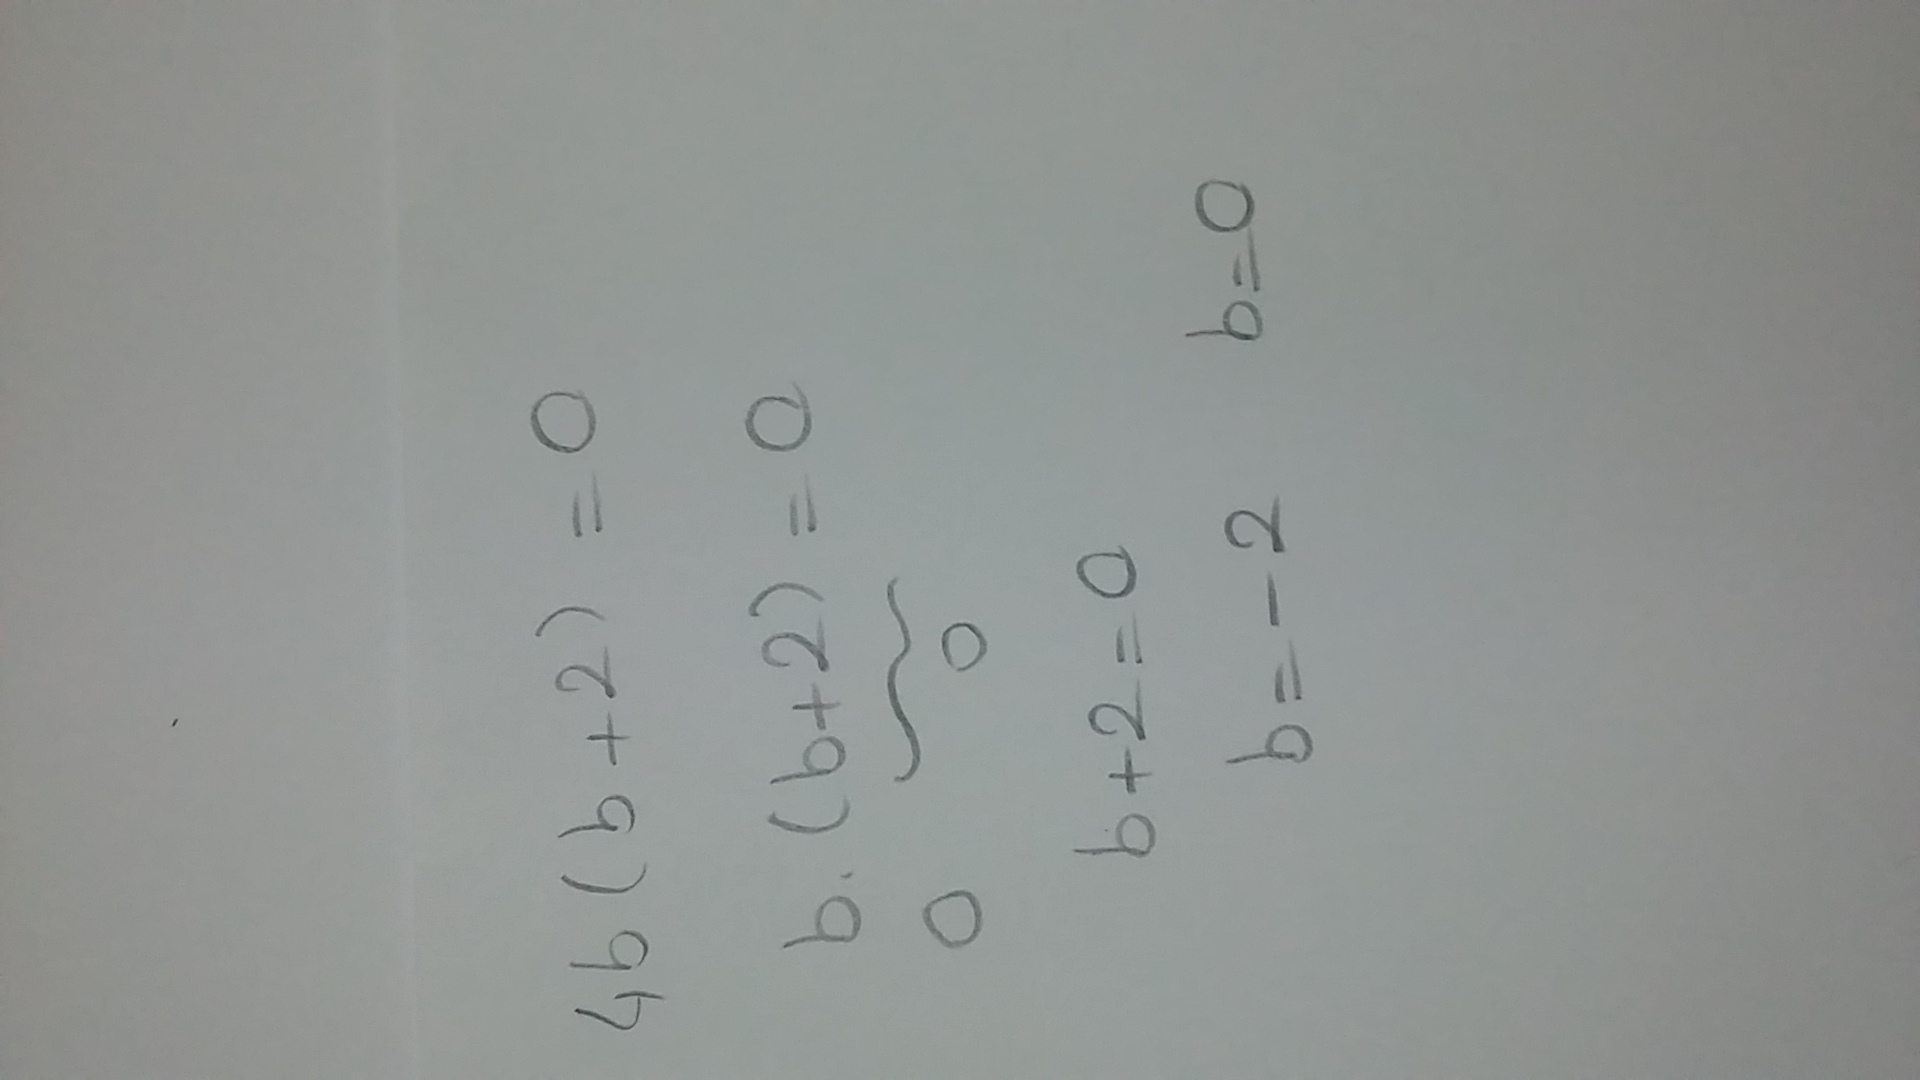 4b(b+2) = 0
b.(b+2) = 0
0 0
b+2=0
b=-2 b=0